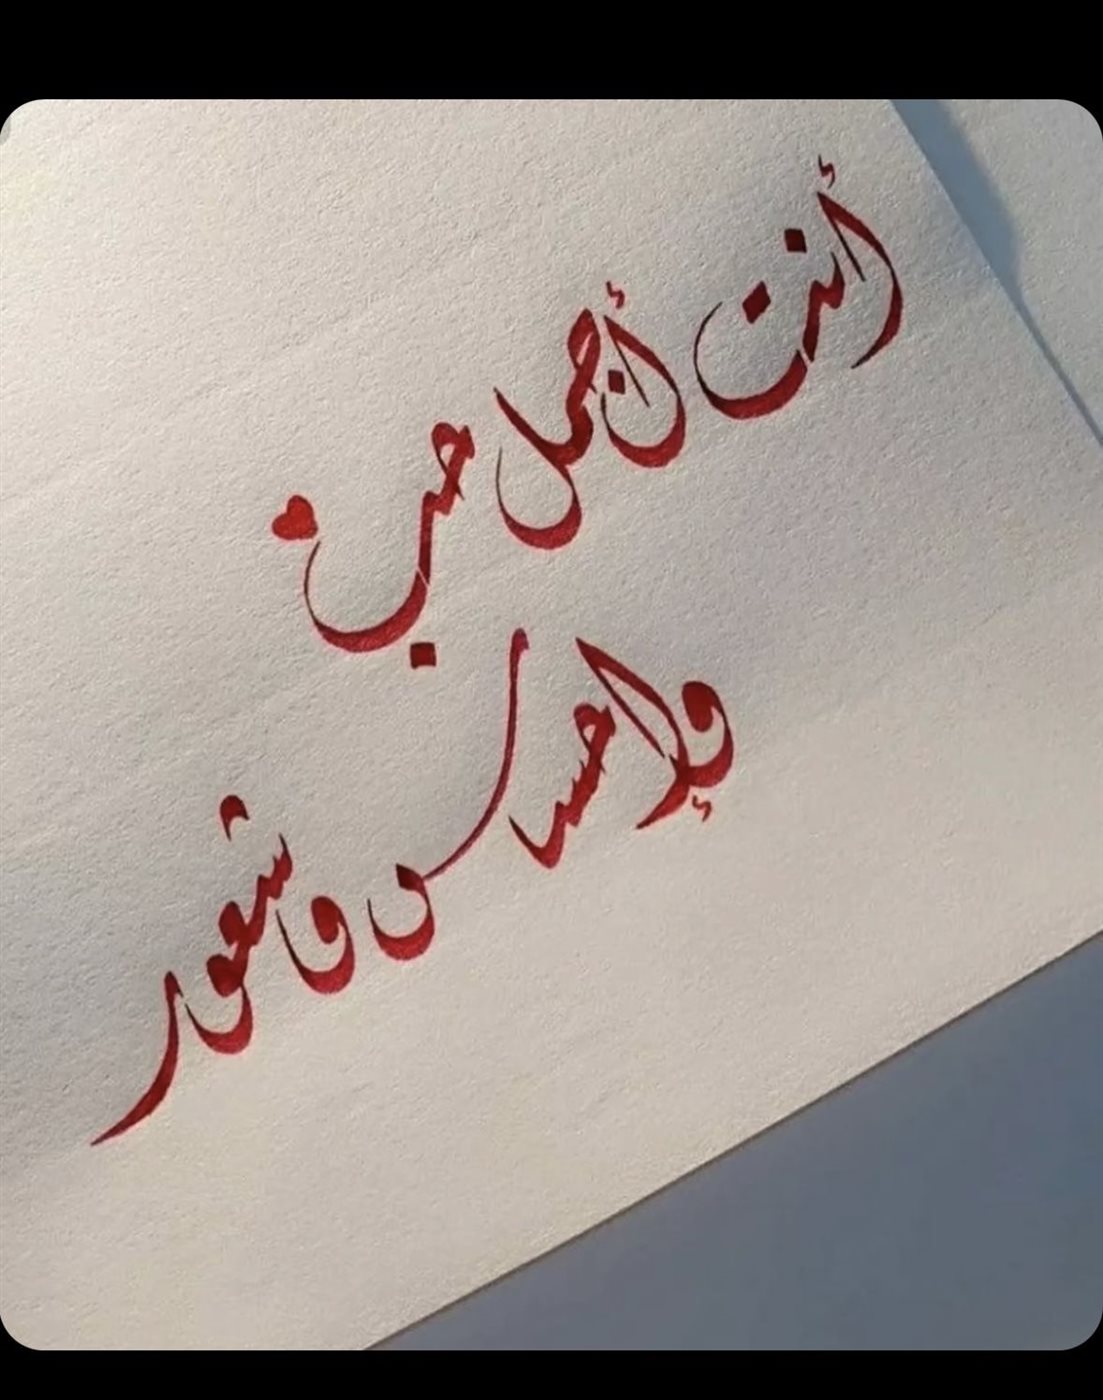 أنت أجمل حب
وإحساس وشعور